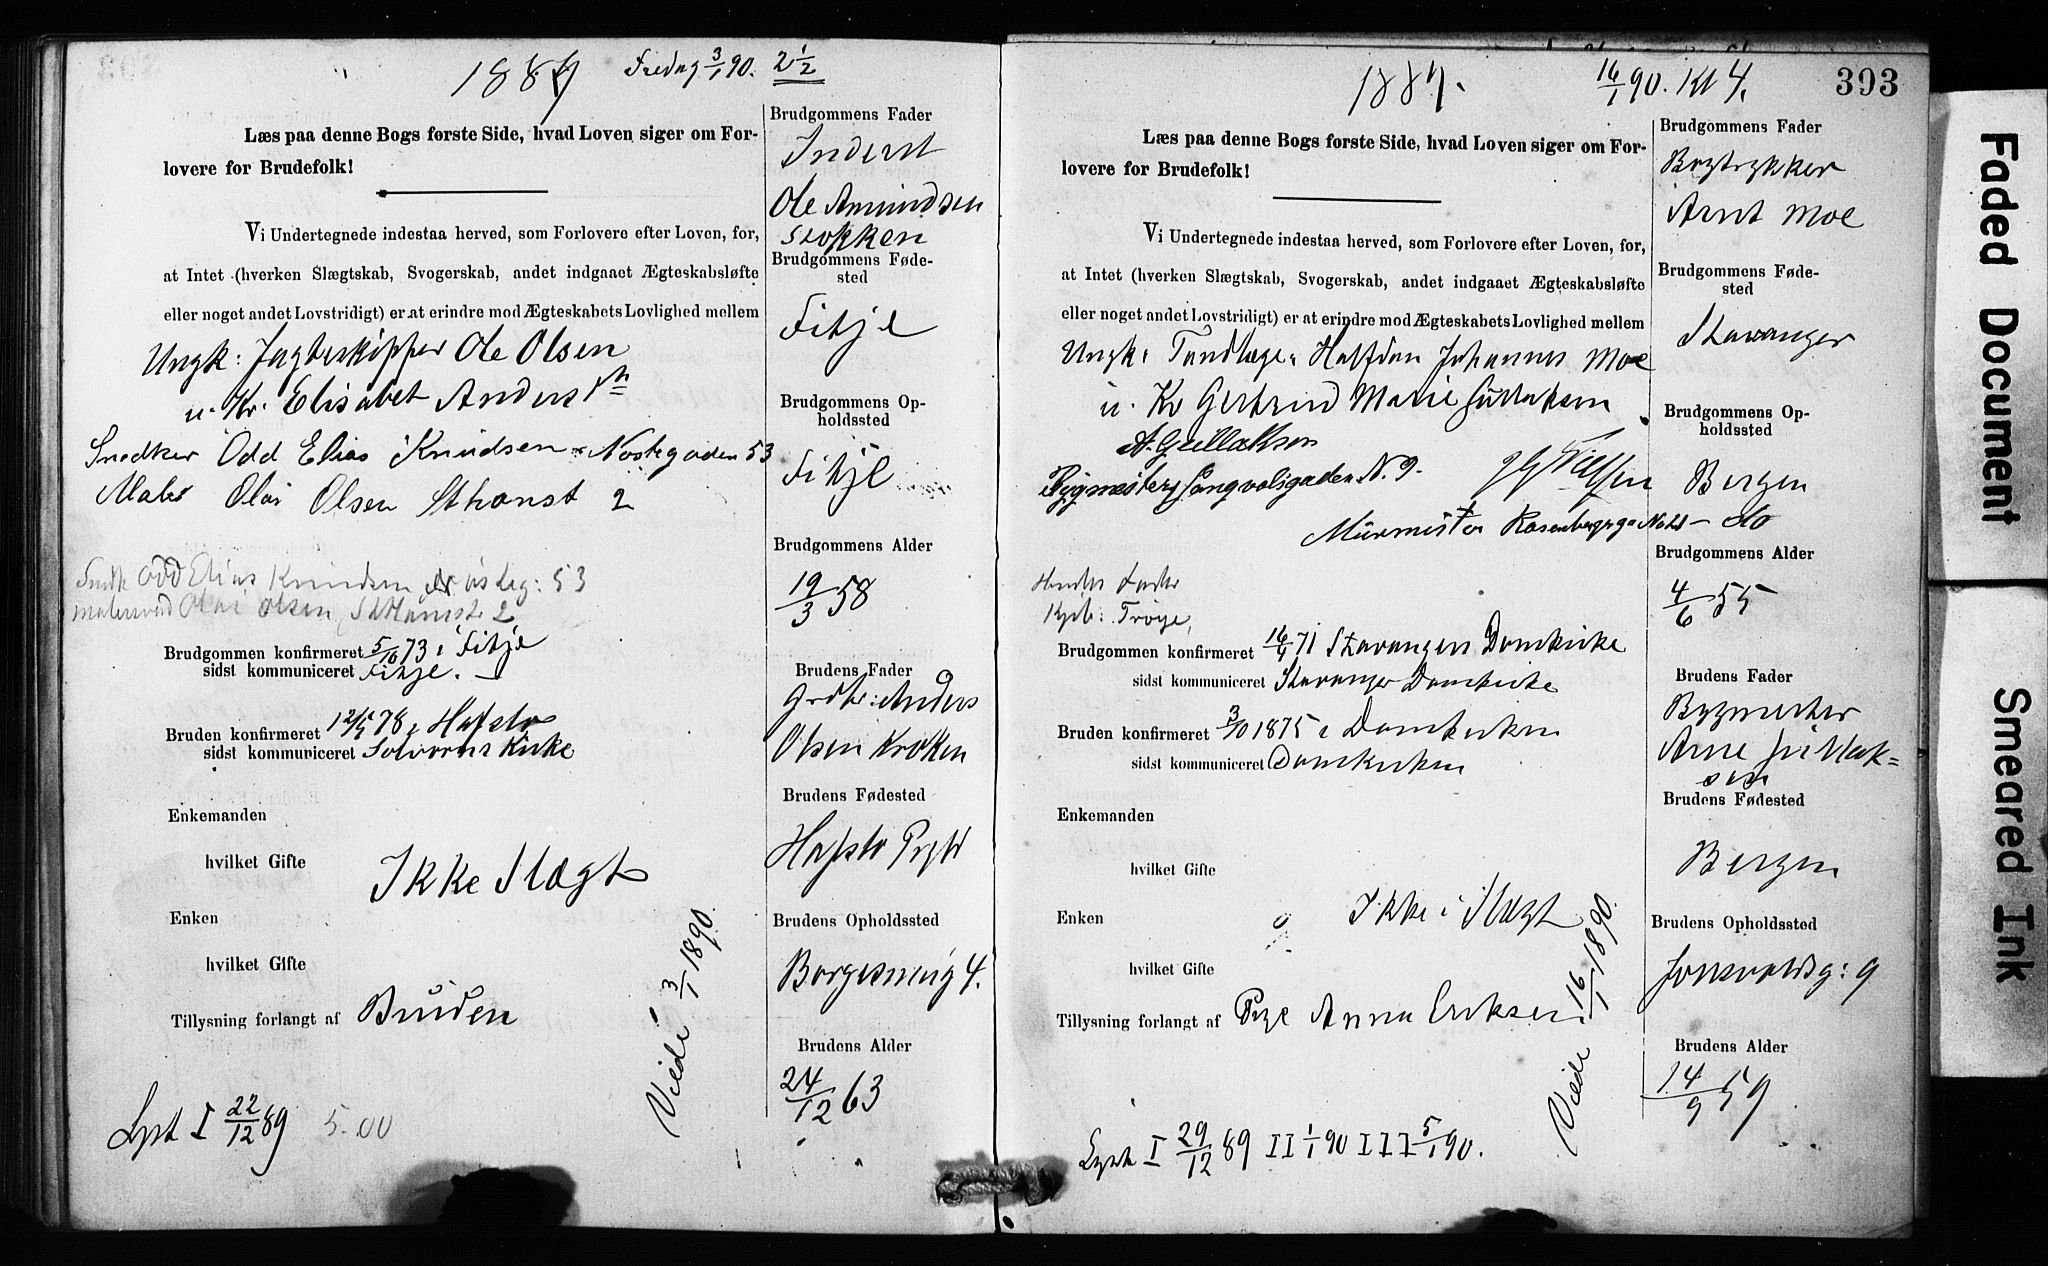 1889 Fredag 3/1 90. 2 1/2
Læs paa denne Bogs første Side, hvad Loven siger om For-
lovere for Brudefolk!
Vi Undertegnede indestaa herved, som Forlovere efter Loven, for,
at Intet (hverken Slægtskab, Svogerskab, andet indgaaet Ægteskabsløfte
eller noget andet Lovstridigt) er at erindre mod Ægteskabets Lovlighed mellem
Ungk: Jagteskipper Ole Olsen
u. Kv. Elisabet Andersdtr
Snedker Odd Elias Knudsen Nøstegaden 53
Maler Olai Olsen St Hanst 2
Snedk Odd Elias Knudsen Nøsteg: 53
Malersvend Olai Olsen, St Hanst 2
Brudgommen konfirmeret 5/10 73 i Fitje
sidst kommuniceret Fitje.
Bruden konfirmeret 12/5 78 i Hafslo
sidst kommuniceret Solvorns Kirke
Enkemanden
hvilket Gifte
Ikke Slægt
Enken
hvilket Gifte
Tillysning forlangt af Bruden
Viede 3/1 1890.
Lyst I 22/12 89 5.00
Brudgommens Fader
Inderst
Ole Amundsen
Stokken
Brudgommens Føde-
sted
Fitje
Brudgommens Op-
holdssted
Fitje
Brudgommens Alder
19/3 58
Brudens Fader
Grdbr: Anders
Olsen Kroken
Brudens Fødested
Hafslo Prgld
Brudens Opholdssted
Borgesmug 4.
Brudens Alder
24/12 63
1889. 16/1 90. Kl 4. 393
Læs paa denne Bogs første Side, hvad Loven siger om For-
lovere for Brudefolk!
Vi Undertegnede indestaa herved, som Forlovere efter Loven, for,
at Intet (hverken Slægtskab, Svogerskab, andet indgaaet Ægteskabsløfte
eller noget andet Lovstridigt) er at erindre mod Ægteskabets Lovlighed mellem
Ungk: Tandlæge Halfdan Johannes Moe
u. Kv Gertrud Marie Gullaksen
A. Gullaksen
Bygmester, Jonsvoldgaden N. 9.
Nielsen
Murmester Rosenbergsga
Hendes Fader
Kjøb:
Brudgommen konfirmeret 16/4 71 Stavanger Domkirke
sidst kommuniceret Stavanger Domkirke
Bruden konfirmeret 3/10 1875 i Domkirken
sidst kommuniceret Domkirken
Enkemanden
hvilket Gifte
Ikke i Slægt
Enken
hvilket Gifte
Tillysning forlangt af Pige Anna Eriksen
Viede 16/1 1890.
Lyst I 29/12 89 II 1/1 90 III 5/1 90.
Brudgommens Fader
Bogtrykker
Arnt Moe
BrudgommensFøde-
sted
Stavanger
Brudgommens Op-
holdssted
Bergen
do
Brudgommens Alder
4/6 55
Brudens Fader
Bygmester
Arne Gullak=
sen
Brudens Fødested
Bergen
Brudens Opholdssted
Jonsvoldsg: 9
Brudens Alder
14/9 59
Faded Document
Smeared Ink